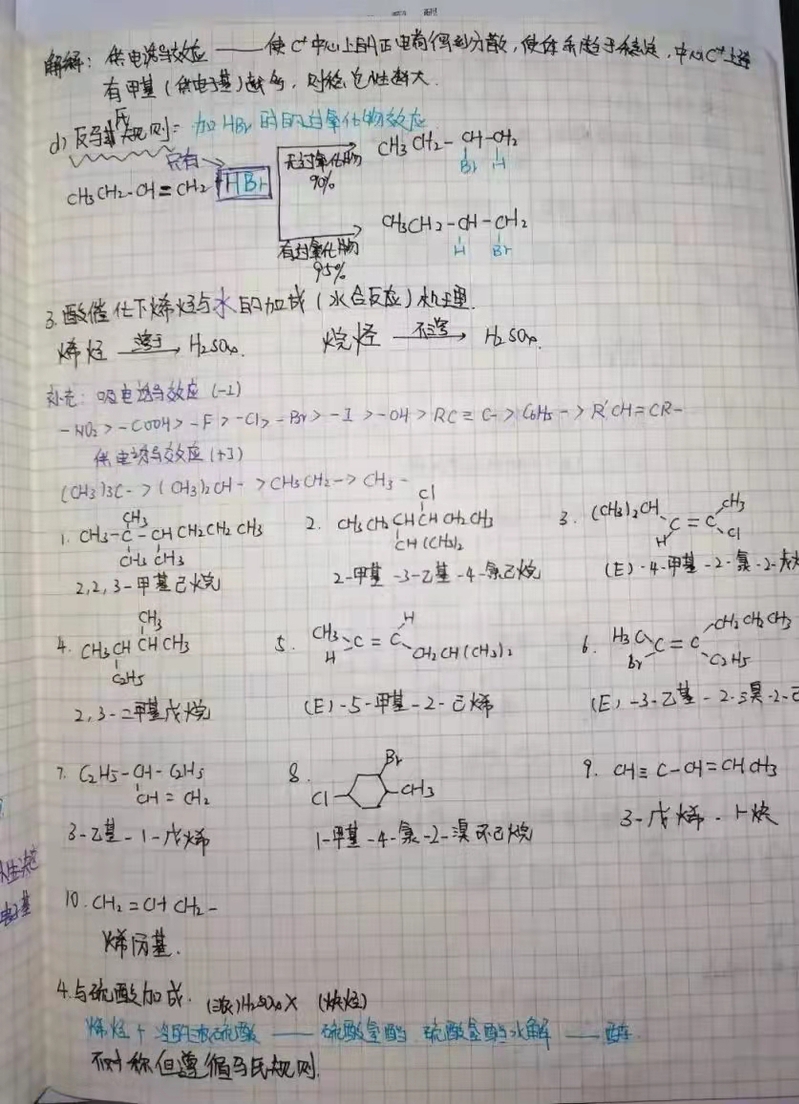 解释：供电诱导效应——使C⁺中心上的正电荷得到分散，使体系趋于稳定，中心C⁺上连
有甲基（供电子基）越多，则稳定性越大.
d) 反马氏规则：加HBr时的过氧化物效应
只有
CH3CH2-CH=CH2 + HBr
无过氧化物
90%
CH3CH2-CH-CH2
Br H
有过氧化物
95%
CH3CH2-CH-CH2
H Br
3.酸催化下烯烃与水的加成（水合反应）机理.
烯烃 溶于→ H2SO4. 烷烃 不溶→ H2SO4.
补充：吸电诱导效应（-I）
-NO2>-COOH>-F>-Cl>-Br>-I>-OH>RC≡C->C6H5->R'CH=CR-
供电诱导效应（+I）
(CH3)3C->(CH3)2CH->CH3CH2->CH3-
1. CH3-C-CH CH2CH2CH3
CH3
CH3 CH3
2,2,3-甲基己烷
2. CH3CH2CHCHCH2CH3
Cl
CH(CH3)2
2-甲基-3-乙基-4-氯己烷
3. (CH3)2CH
H
C=C
CH3
Cl
(E)-4-甲基-2-氯-2-戊
4. CH3CHCHCH3
CH3
C2H5
2,3-二甲基戊烷
5. CH3
H
C=C
H
CH2CH(CH3)2
(E)-5-甲基-2-己烯
6. H3C
Br
C=C
CH2CH2CH3
C2H5
(E)-3-乙基-2-溴-2-己
7. C2H5-CH-C2H5
CH=CH2
3-乙基-1-戊烯
8.
Br
Cl
CH3
1-甲基-4-氯-2-溴环己烷
9. CH≡C-CH=CHCH3
3-戊烯-1-炔
10. CH2=CHCH2-
烯丙基.
4.与硫酸加成. （浓）H2SO4 X （炔烃）
烯烃+冷的浓硫酸——硫酸氢酯 硫酸氢酯水解——醇.
不对称但遵循马氏规则.